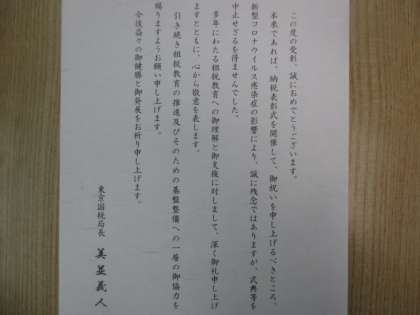 この度の受彰、誠におめでとうございます。
本来であれば、納税表彰式を開催して、御祝いを申し上げるべきところ、
新型コロナウイルス感染症の影響により、誠に残念ではありますが、式典等を
中止せざるを得ませんでした。
多年にわたる租税教育への御理解と御支援に対しまして、深く御礼申し上げ
ますとともに、心から敬意を表します。
引き続き租税教育の推進及びそのための基盤整備への一層の御協力を
賜りますようお願い申し上げます。
今後益々の御健勝と御発展をお祈り申し上げます。
東京国税局長 美並義人